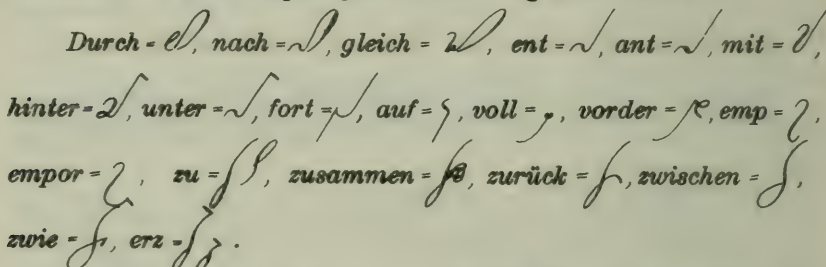 Durch =, nach =, gleich =, ent =, ant =, mit =,
hinter =, unter =, fort =, auf =, voll =, vorder =, emp =,
empor =, zu =, zusammen =, zurück =, zwischen =,
zwie =, erz =.